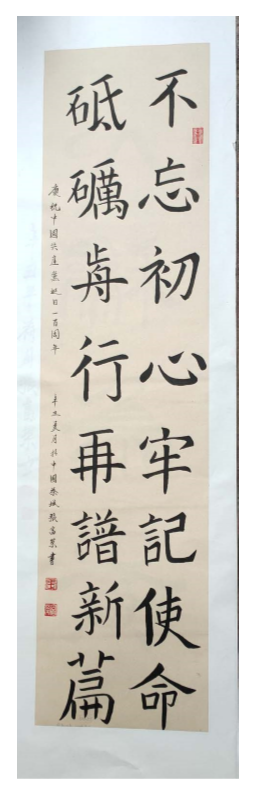 不忘初心牢記使命
砥礪前行再譜新篇
慶祝中國共產黨成立一百周年
辛丑夏月於中國
書